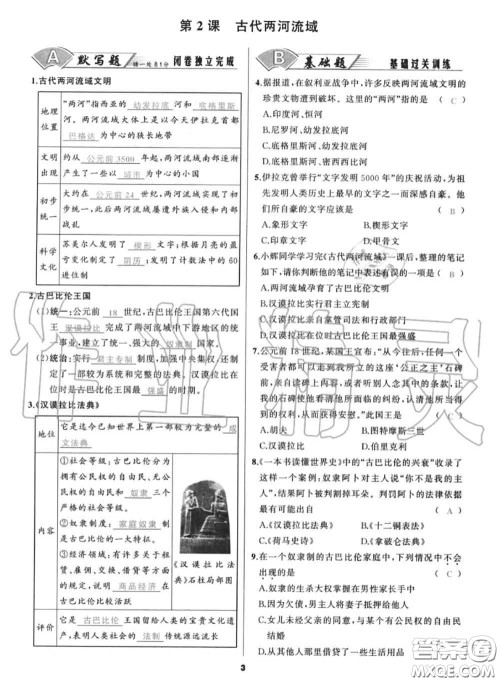 第2课 古代两河流域
A 默写题 错一处扣1分 闭卷独立完成
1.古代两河流域文明
地理位置
“两河”指西亚的 幼发拉底 河和 底格里斯
河。两河流域大体上是以今天伊拉克首都
巴格达 为中心的狭长地带
文明出现
约从 公元前3500 年起,两河流域南部逐渐
产生了一些以 城市 为中心的小国
初步统一
大约在 公元前24 世纪,两河流域实现了初
步统一,此后两河流域屡遭外族入侵和内部
战乱
科学文化
苏美尔人发明了 楔形 文字;根据月亮的盈
亏变化制定了 阴历 ;发明了计数法中的60
进位制
2.古巴比伦王国
(1)统一:公元前 18 世纪,古巴比伦王国第六代国
王 汉谟拉比 完成了两河流域中下游地区的统
一事业,建立了统一、强大的 奴隶制 国家。
(2)统治:实行 君主专制 制度,加强中央集权;还制
定了一部较为系统和完整的法典。汉谟拉比在
位时是古巴比伦王国最 强盛 的时期。
3.《汉谟拉比法典》
地位
它是迄今已知世界上第一部较为完整的 成
文法典
内容
①社会等级:古巴比伦分为
拥有公民权的自由民、无公
民权的自由民和 奴隶 三个
严格的社会等级
②奴隶制度: 家庭奴隶 是
古巴比伦的一大特征。
③经济领域:有许多关于租
赁、雇佣、交换、借贷等方面
的规定,说明 商品经济 在
古巴比伦比较活跃
《汉谟拉比法
典》石柱局部图
评价
它是 古巴比伦 王国留给人类的宝贵文化遗
产,表明人类社会的 法制 传统源远流长
B 基础题 基础过关训练
4.据报道,在叙利亚战争中,许多反映两河流域文明的
珍贵文物遭到破坏。这里的“两河”指的是 ( C )
A.印度河、恒河
B.尼罗河、幼发拉底河
C.幼发拉底河、底格里斯河
D.底格里斯河、密西西比河
5.伊拉克曾举行“文字产生5000年”的庆祝活动,为祖
先发明人类历史上最早的文字之一而深感自豪。他
们所自豪的文字应该是 ( B )
A.象形文字 B.楔形文字
C.印章文字 D.甲骨文
6.小辉同学学习完《古代两河流域》一课后,整理的笔记
如下,请你判断他的笔记中表述有误的一项是 ( D )
A.两河流域孕育了古巴比伦文明
B.汉谟拉比实行君主独立宪制
C.汉谟拉比亲自掌管司法和行政部门
D.汉谟拉比在位时是古巴比伦最强盛的时期
7.公元前18世纪,某国王宣布:“从今往后,任何一个
受害者都可以到我所立的这座‘公正之王’石碑
前,亲自或者听别人念其中的条款,让
我的石碑使他看到问题所在,
的审判,从而获得安慰。”此国王是 ( )
A.胡夫 B.图特摩斯三世
C.汉谟拉比 D.伯里克利
8.《一本书读懂世界史》中的“古巴比伦的兴衰”收录了
这样一个案例:奴隶阿卜对主人说“你不是我的主
人”,结果阿卜被判割掉耳朵。当时的法律依据最
有可能出自 ( A )
A.《汉谟拉比法典》 B.《十二铜表法》
C.《荷马史诗》 D.《拿破仑法典》
9.在一个奴隶制的古巴比伦家庭中,下列情况中不会
出现的是 ( C )
A.奴隶的生杀大权掌握在所有男性公民手中
B.因为欠债,男主人将妻子抵押给债主
C.女儿未经父亲的同意,与某一个具有公民权的自由民
结婚
D.从其他人那里借贷了一些生活用品
3
作业精灵